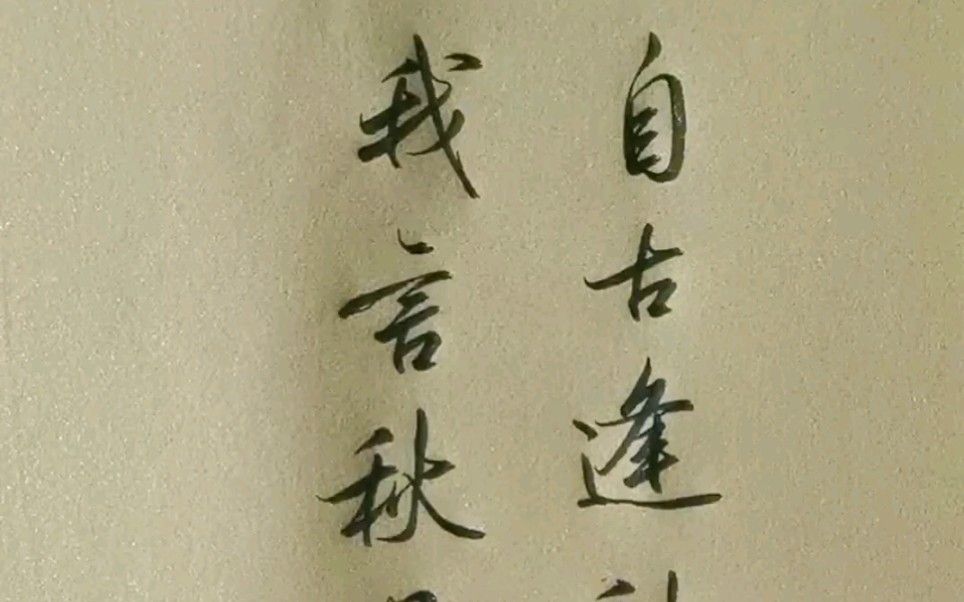 自古逢
我言秋